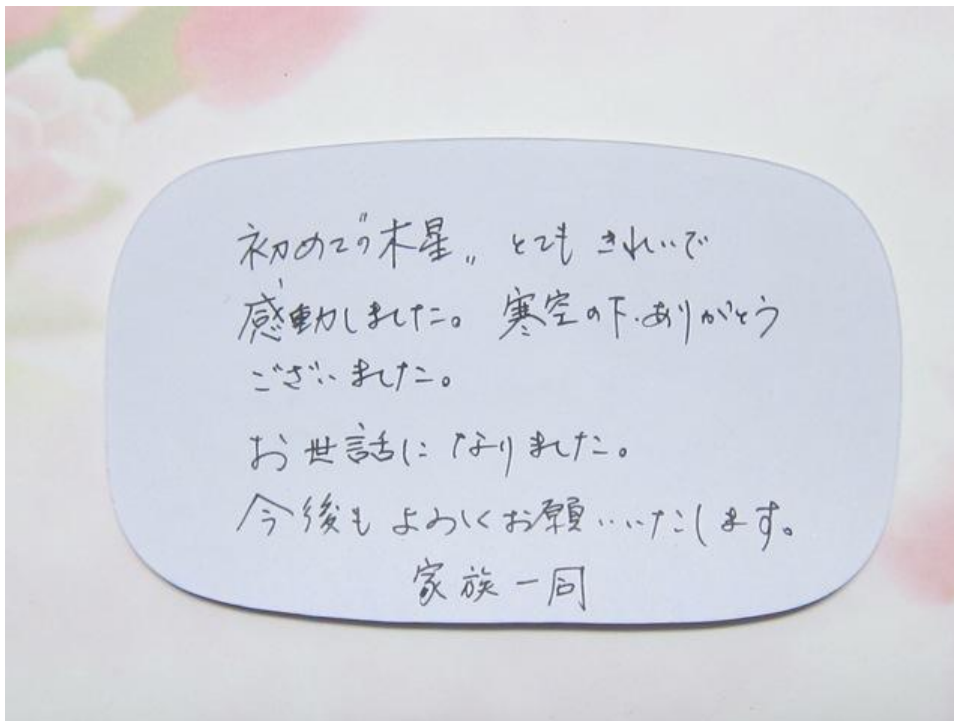 初めての〝木星〟とても きれいで
感動しました。 寒空の下、ありがとう
ございました。
お世話になりました。
今後もよろしくお願いいたします。
家族一同